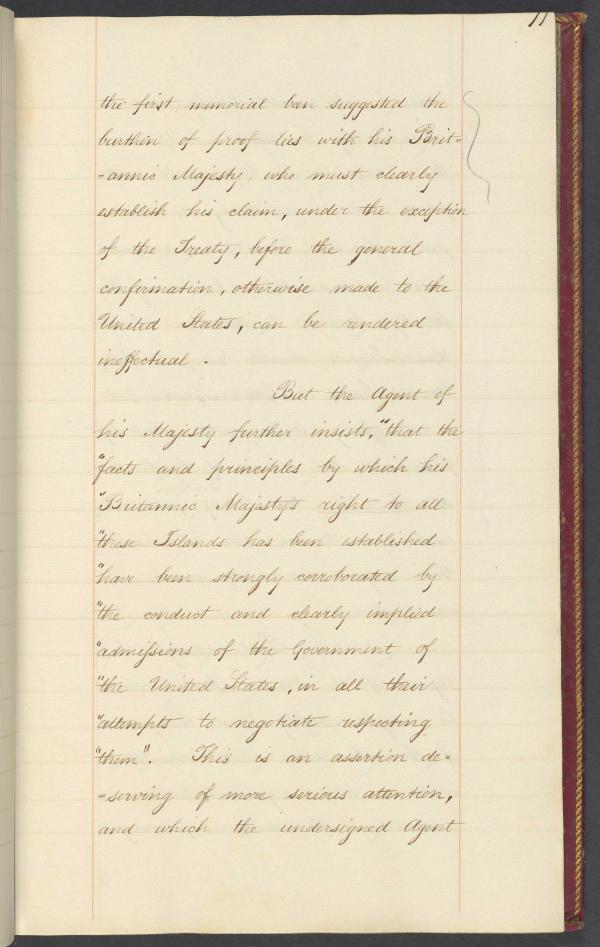 11
the first memorial been suggested the
burthen of proof lies with his Brit=
=annic Majesty who must clearly
establish his claim, under the exception
of the Treaty, before the general
confirmation, otherwise made to the
United States, can be rendered
ineffectual .
But the Agent of
his Majesty further insists, "that the
"facts and principles by which his
"Britannic Majesty's right to all
"these Islands has been established
"have been strongly corroborated by
"the conduct and clearly implied
"admissions of the Government of
"the United States, in all their
"attempts to negotiate respecting
"them". This is an assertion de=
=serving of more serious attention,
and which the undersigned Agent